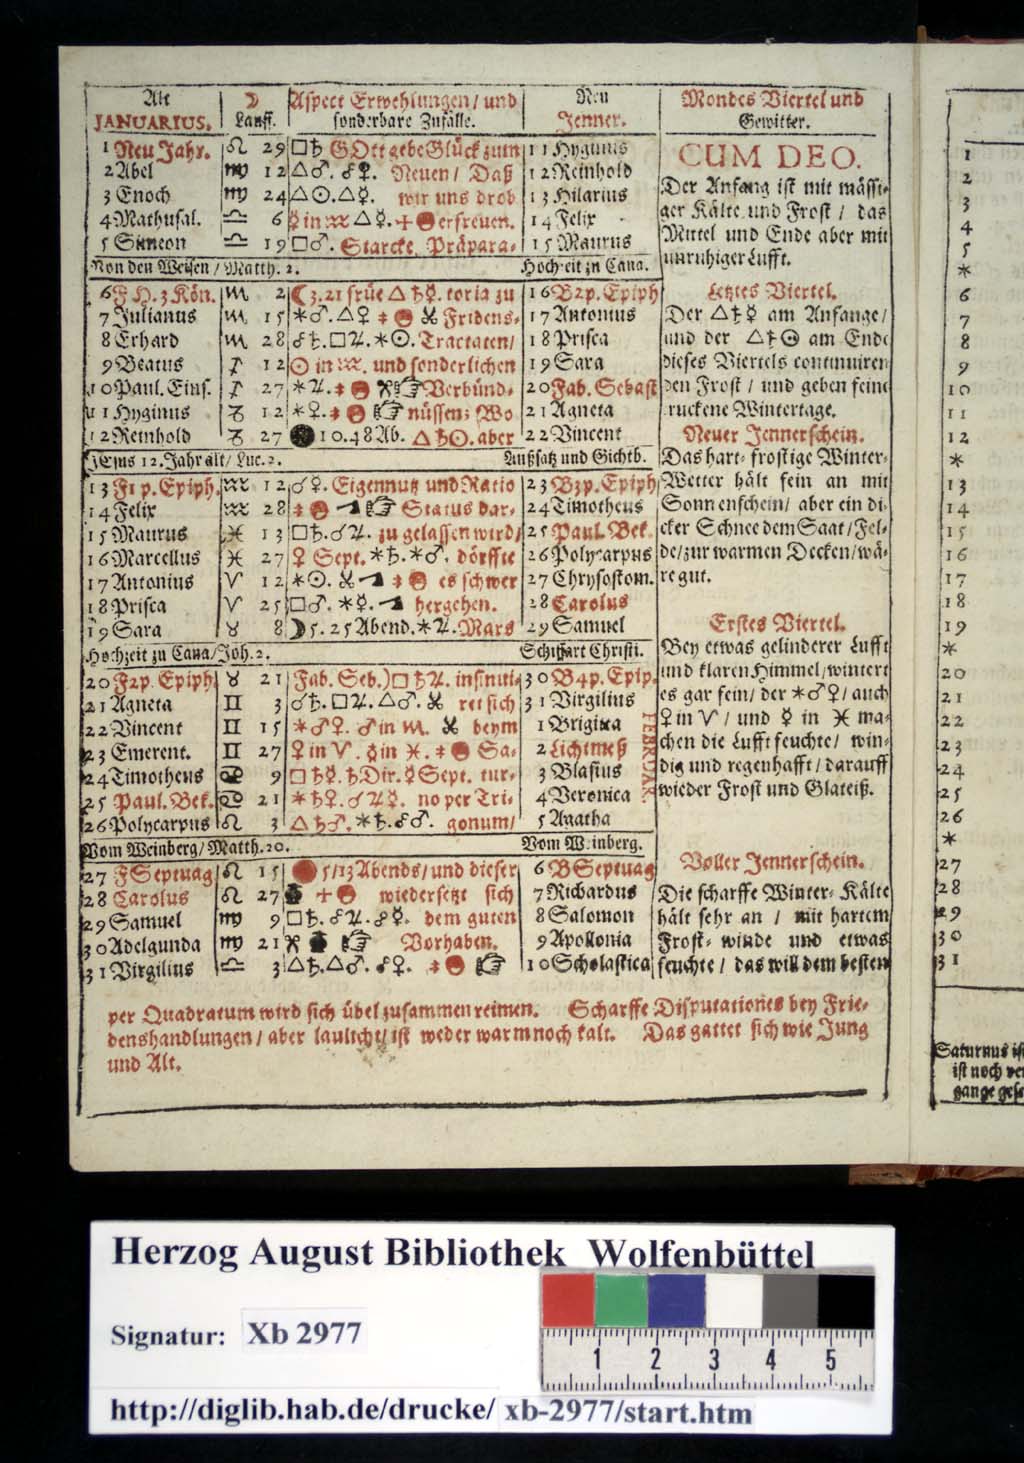 Alt ☽ Aspect Erwehlungen / und Neu Mondes Viertel und
JANUARIUS. Lauff. sonderbare Zufälle. Jenner. Gewitter.
1 Neu Jahr. ♌ 29 □♄ GOtt gebe Glück zum 11 Hyginus
2 Abel ♍ 12 △♂. ☍♀. Neuen / Daß 12 Reinhold
3 Enoch ♍ 24 △☉. △☿. wir uns drob 13 Hilarius
4 Mathusal. ♎ 6 ☿ in ♒ △☿. erfreuen. 14 Felix
5 Simeon ♎ 19 □♂. Starcke Präpara- 15 Maurus
Von den Weisen / Matth. 2. Hochzeit zu Cana.
6 F H. 3 Kön. ♏ 2 ☾ 3. 21 früe △♄☿. toria zu 16 B2p. Epiph
7 Julianus ♏ 15 ✶♂. △♀ Fridens- 17 Antonius
8 Erhard ♏ 28 ☍♄. □♃. ✶☉. Tractaten / 18 Prisca
9 Beatus ♐ 12 ☉ in ♒. und sonderlichen 19 Sara
10 Paul. Eins. ♐ 27 ✶♃. Verbünd- 20 Fab. Sebast
11 Hyginus ♑ 12 ✶♀. nüssen; Wo 21 Agneta
12 Reinhold ♑ 27 ● 10. 48 Ab. △♄☉. aber 22 Vincent
JEsus 12. Jahr alt / Luc. 2. Außsatz und Gichtb.
13 F1 p. Epiph. ♒ 12 ☌♀. Eigennutz und Ratio 23 B3p. Epiph
14 Felix ♒ 28 Status dar- 24 Timotheus
15 Maurus ♓ 13 □♄. ☌♃. zu gelassen wird / 25 Paul. Bek.
16 Marcellus ♓ 27 ♀ Sept. ✶♄. ✶♂. dörffte 26 Polycarpus
17 Antonius ♈ 12 ✶☉. es schwer 27 Chrysostom.
18 Prisca ♈ 25 □♂. ✶☿. hergehen. 28 Carolus
19 Sara ♉ 8 ☽ 5. 25 Abend. ✶♃. Mars 29 Samuel
Hochzeit zu Cana / Joh. 2. Schiffart Christi.
20 F2p. Epiph. ♉ 21 Fab. Seb.) □♄♃. insinui- 30 B4p. Epip.
21 Agneta ♊ 3 ☌♄. □♃. △♂. ret sich 31 Virgilius
22 Vincent ♊ 15 ✶♂♀. ♂ in ♏. beym 1 Brigitta
23 Emerent. ♊ 27 ♀ in ♈. ☿ in ♓. Sa- 2 Lichtmeß
24 Timotheus ♋ 9 □♄☿. ♄ Dir. ☿ Sept. tur- 3 Blasius
25 Paul. Bek. ♋ 21 ✶♄♀. ☌♃☿. no per Tri- 4 Veronica
26 Polycarpus ♌ 3 △♄♂. ✶♄. ☍♂. gonum / 5 Agatha
FEBRUAR.
Vom Weinberg / Matth. 20. Vom Weinberg.
27 F Septuag ♌ 15 5 / 13 Abends / und dieser 6 B Septuag
28 Carolus ♌ 27 wiedersetzt sich 7 Richardus
29 Samuel ♍ 9 □♄. ☍♃. ☍☿. dem guten 8 Salomon
30 Adelgunda ♍ 21 Vorhaben. 9 Apollonia
31 Virgilius ♎ 3 △♄. △♂. ☍♀. 10 Scholastica
CUM DEO.
Der Anfang ist mit mässi-
ger Kälte und Frost / das
Mittel und Ende aber mit
unruhiger Lufft.
Letztes Viertel.
Der △♄☿ am Anfange /
und der △♄☉ am Ende
dieses Viertels continuiren
den Frost / und geben feine
truckene Wintertage.
Neuer Jennerschein.
Das hart- frostige Winter-
Wetter hält fein an mit
Sonnenschein / aber ein di-
cker Schnee dem Saat / Fel-
de / zur warmen Decken / wä-
re gut.
Erstes Viertel.
Bey etwas gelinderer Lufft
und klaren Himmel / wintert
es gar fein / der ✶♂♀ / auch
♀ in ♈ / und ☿ in ♓ ma-
chen die Lufft feuchte / win-
dig und regenhafft / darauff
wieder Frost und Glateiß.
Voller Jennerschein.
Die scharffe Winter- Kälte
hält sehr an / mit hartem
Frost- winde und etwas
feuchte / das will dem besten
per Quadratum wird sich übel zusammen reimen. Scharffe Disputationes bey Frie-
denshandlungen / aber laulicht / ist weder warm noch kalt. Das gattet sich wie Jung
und Alt.
1
2
3
4
5
*
6
7
8
9
10
11
12
*
13
14
15
16
17
18
19
*
20
21
22
23
24
25
26
*
27
28
29
30
31
Saturnus
ist noch
gange
Herzog August Bibliothek Wolfenbüttel
Signatur: Xb 2977
1 2 3 4 5
http://diglib.hab.de/drucke/ xb-2977/start.htm